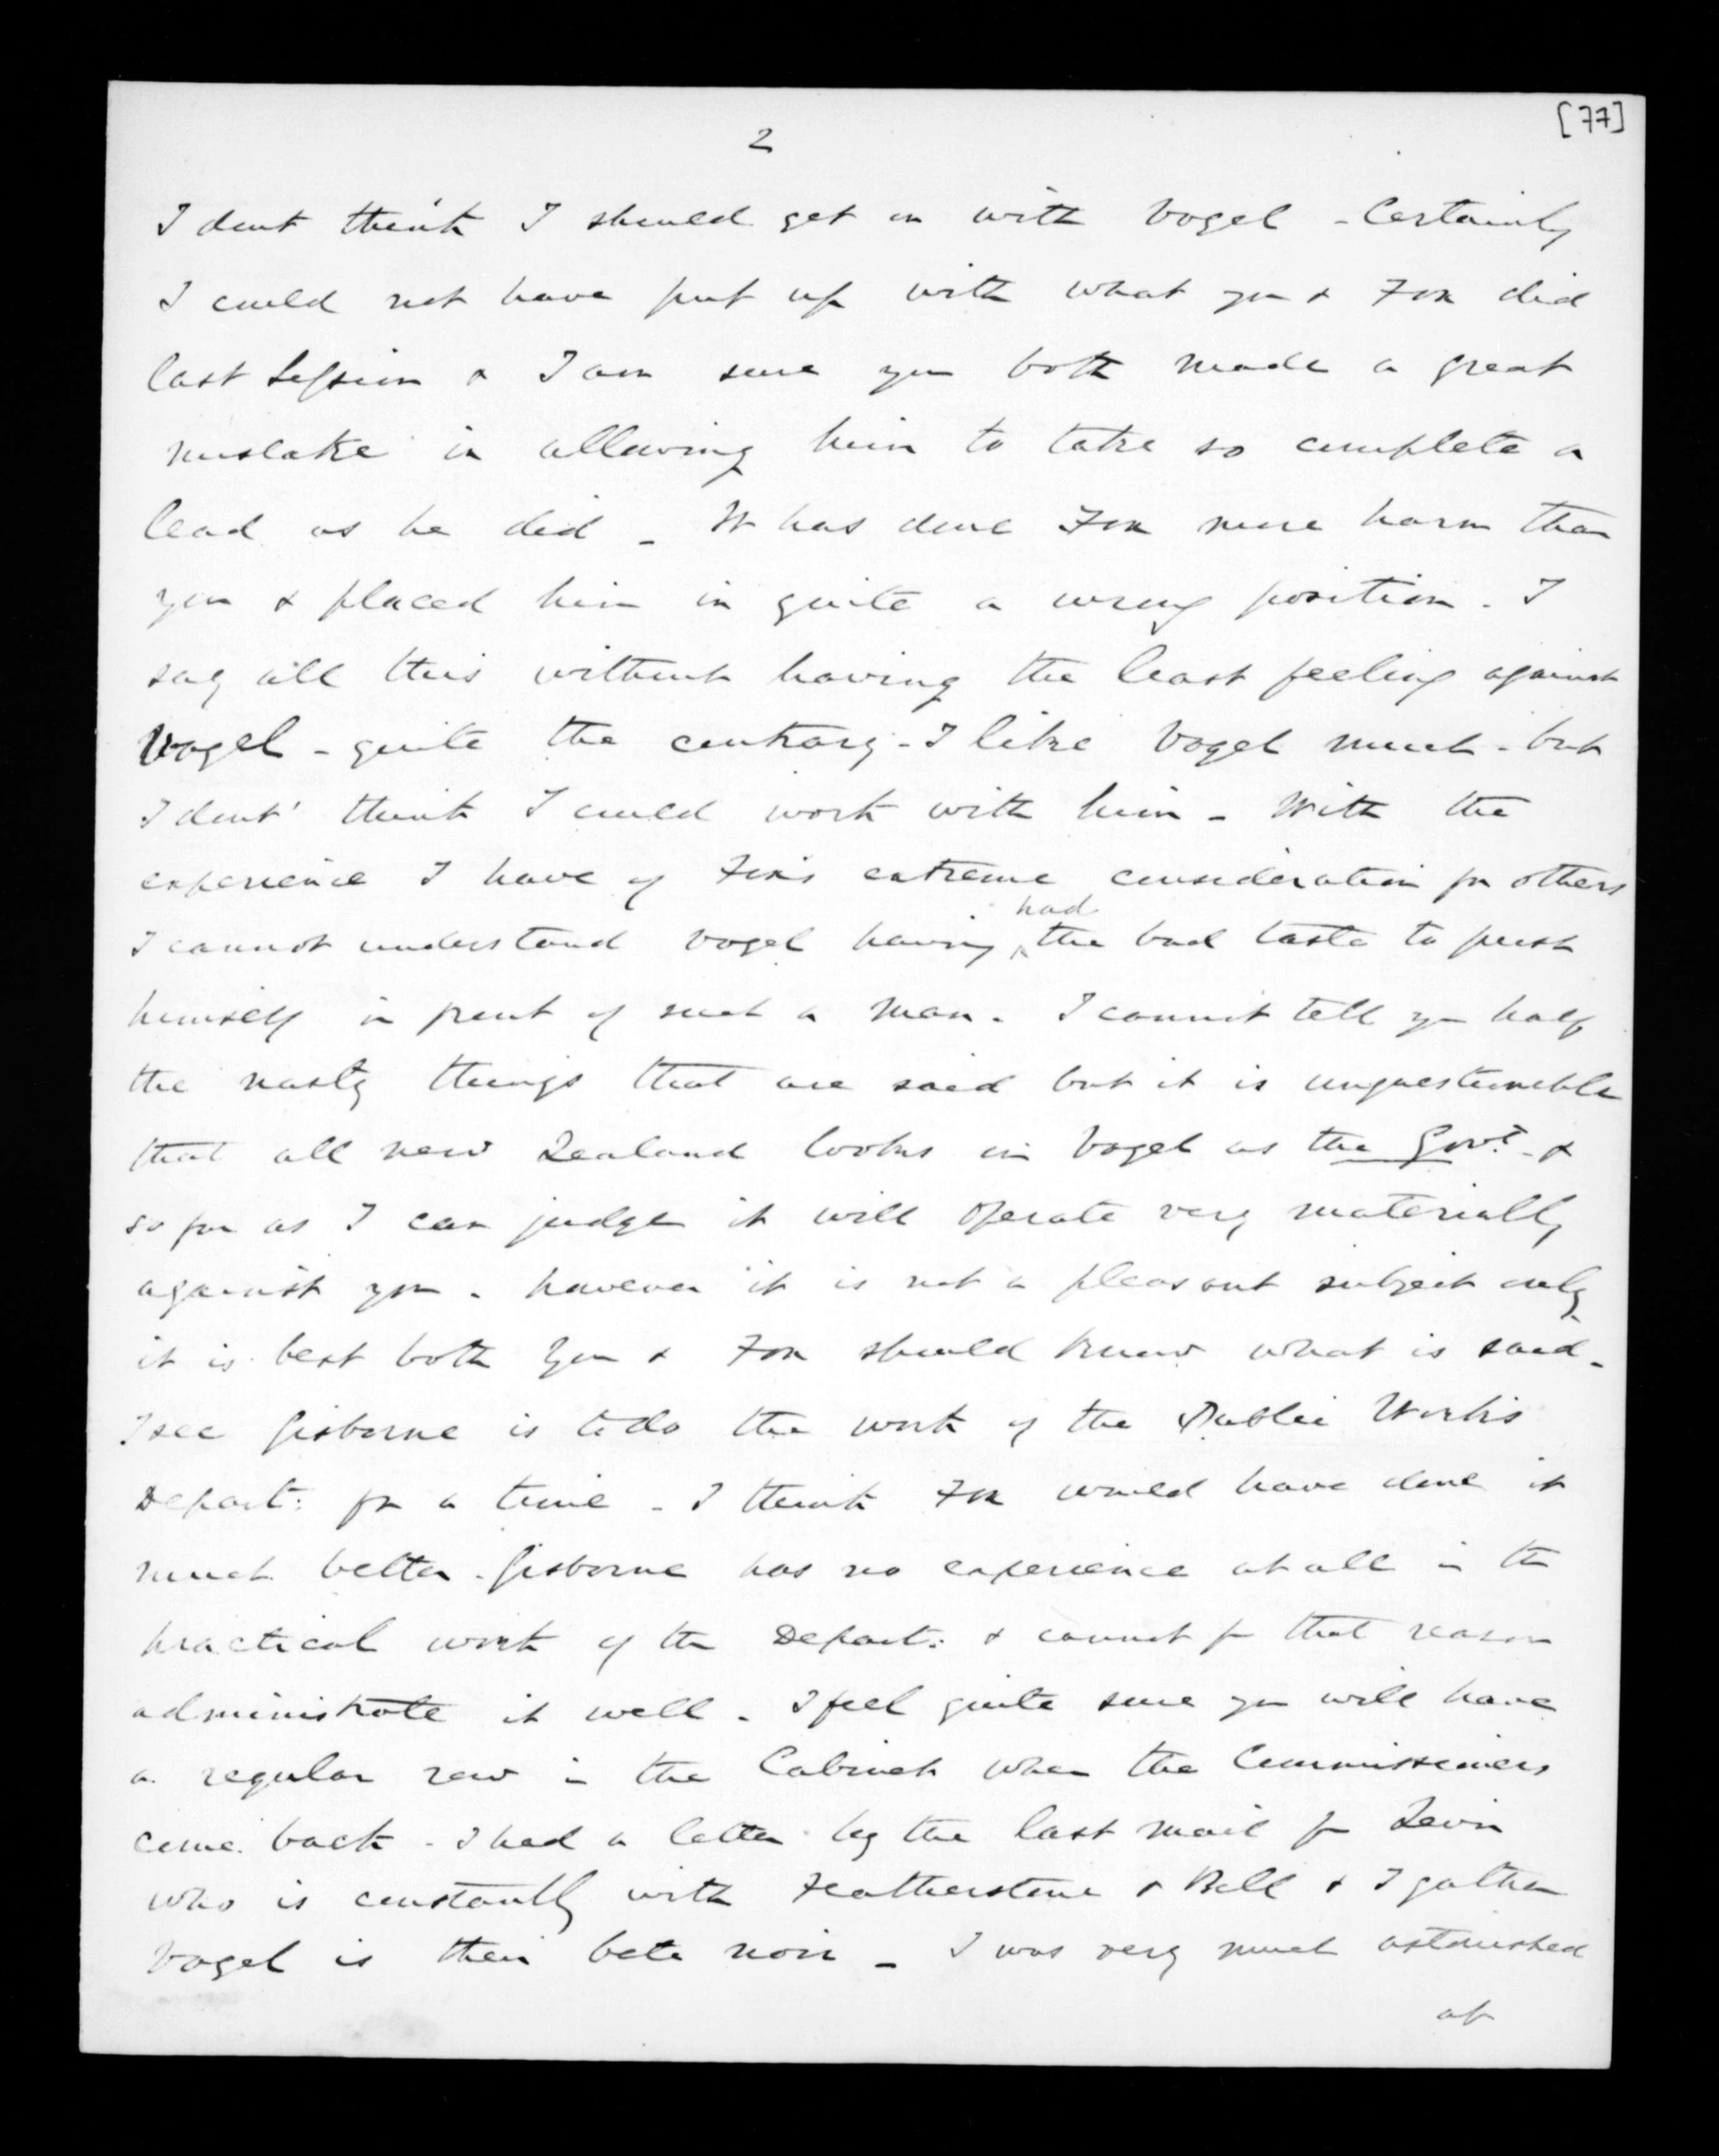 [77]
2
I dont think I should get on with Vogel - Certainly
I could not have put up with what you & Fox did
last Session & I am sure you both made a great
mistake in allowing him to take so complete a
lead as he did - It has done Fox more harm than
you & placed him in quite a wrong position. I
say all this without having the least feeling against
Vogel - quite the contrary - I like Vogel much - but
I dont' think I could work with him - With the
experience I have of Fox's extreme consideration for others
had
I cannot understand Vogel having the bad taste to push
himself in front of such a man. I cannot tell you half
the nasty things that are said but it is unquestionable
that all new Zealand looks on Vogel as the Govt. - &
so far as I can judge it will operate very materially
against you. however it is not a pleasant subject only
it is best both you & Fox should know what is said -
I see Gisborne is to do the work of the Public Works
Depart: for a time - I think Fox would have done it
much better. Gisborne has no experience at all in the
practical work of the Depart: & cannot for that reason
administrate it well. I feel quite sure you will have
a regular row in the Cabinet when the Commissioners
come back - I had a letter by the last mail fr Levin
who is constantly with Featherstone & Bell & I gather
Vogel is their bete noir - I was very much astonished
at